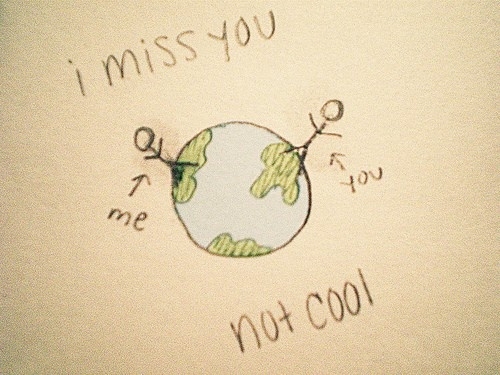 i miss you
me
you
not cool